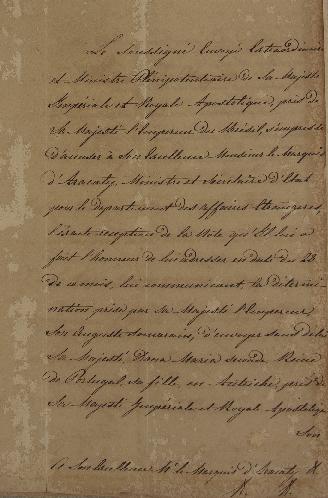 Le Soussigné Envoyé Extraordinaire
et Ministre Plénipotentiaire de Sa Majesté
Impériale et Royale Apostolique, près de
Sa Majesté l'Empereur du Brésil, s'empresse
d'accuser à Son Excellence Monsieur le Marquis
d'Aracaty, Ministre et Sécrétaire d'Etat
pour le département des affaires Etrangères,
réception de la Note qu'Elle lui a
fait l'honneur de lui adresser en date du 28
de ce mois, lui communicant, la détermi-
nation prise par Sa Majesté l'Empereur
Son Auguste Souverain, d'envoyer sans délai
Sa Majesté, Dona Maria seconde Reine
de Portugal, sa fille, en Autriche, près de
Sa Majesté Impériale et Royale Apostolique
Son
A Son Excellence Mr. le Marquis d'Aracaty